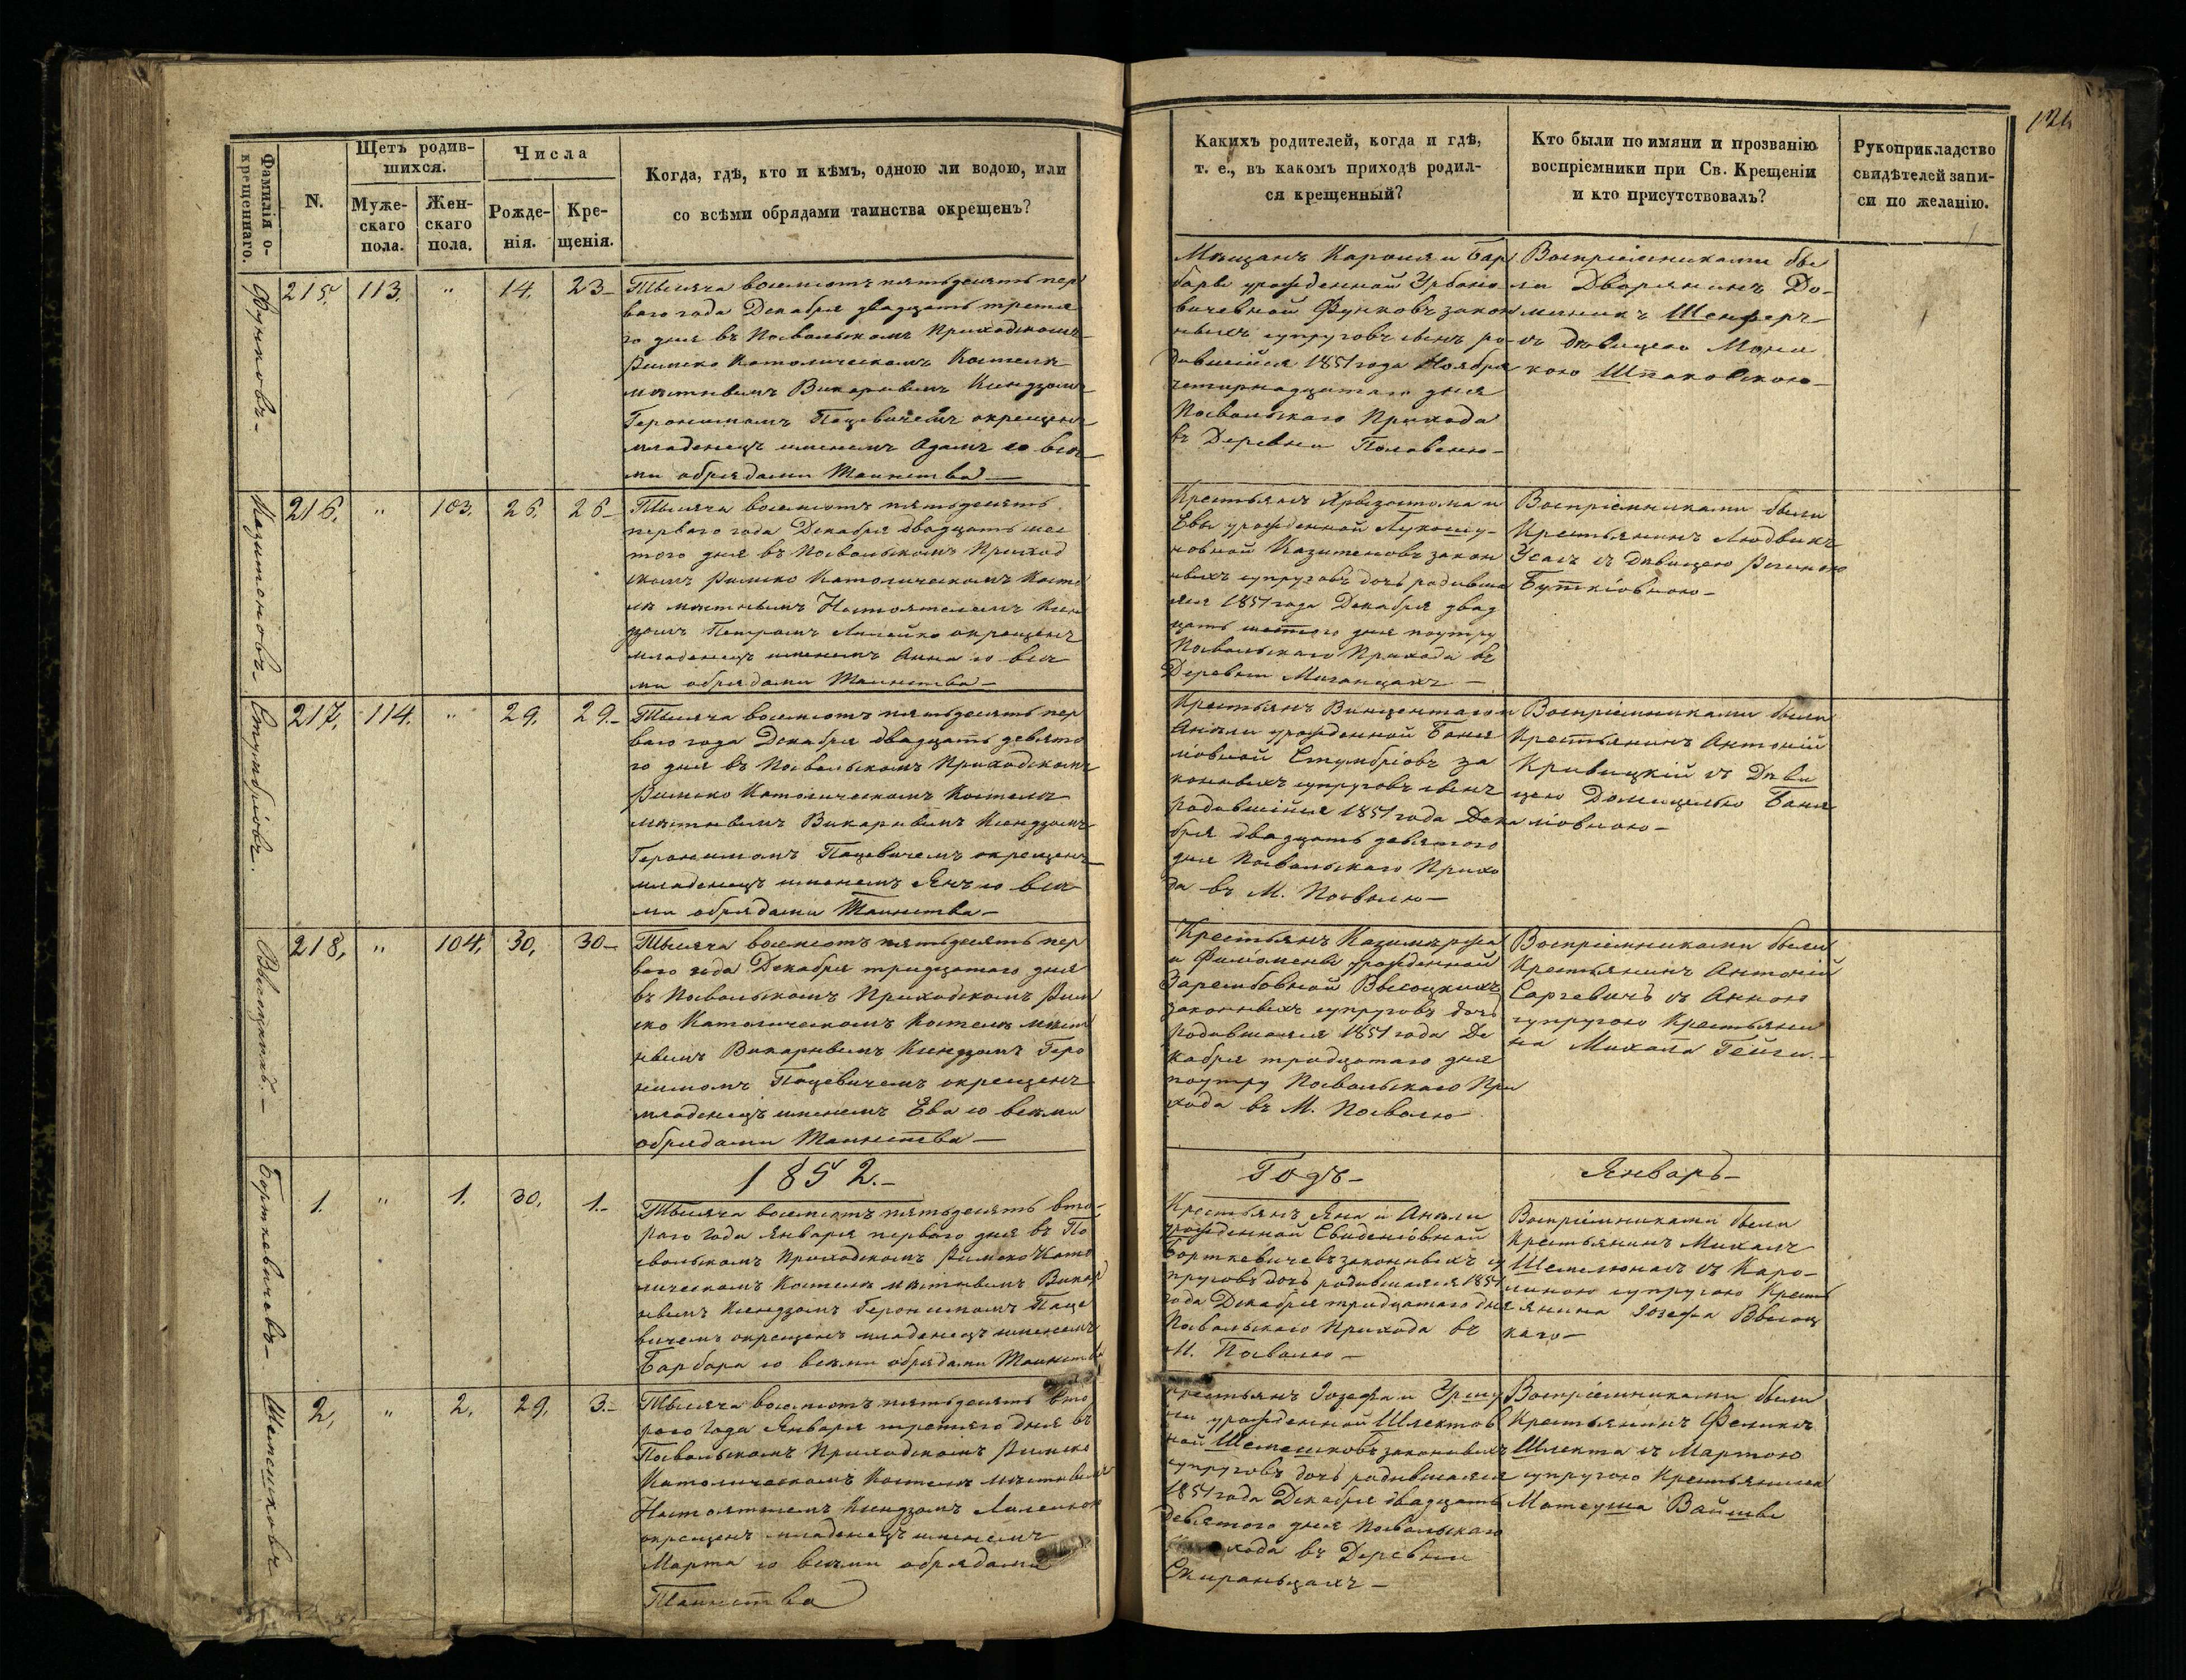 Фамилія о-
крещеннаго.
N.
Щетъ родив-
шихся.
Муже-
скаго
пола.
Жен-
скаго
пола.
Числа
Рожде-
нія.
Кре-
щенія.
Когда, гдѣ, кто и кѣмъ, одною ли водою, или
со всѣми обрядами таинства окрещенъ?
Функовъ-
215. 113. " 14. 23-
Тысяча восемсотъ пятьдесятъ пер
ваго года Декабря двадцать третя
го дня въ Посвольскомъ Приходскомъ
Римско Католическомъ Костелѣ
мѣстнымъ Викарнымъ Ксендзомъ
Геронимомъ Пацевичемъ окрещенъ
младенецъ именемъ Адамъ со всѣ
ми обрядами Таинства-
216. " 103. 26. 26-
Тысяча восемсотъ пятьдесятъ
перваго года Декабря двадцать шес
того дня въ Посвольскомъ Приход
скомъ Римско Католическомъ Косте
лѣ мѣстнымъ Настоятелемъ Ксен
дзомъ Петромъ окрещенъ
младенецъ именемъ Анна со всѣ
ми обрядами Таинства-
Стумбріовъ.
217. 114. " 29. 29.-
Тысяча восемсотъ пятьдесятъ пер
ваго года Декабря двадцать девято
го дня въ Посвольскомъ Приходскомъ
Римско Католическомъ Костелѣ
мѣстнымъ Викарнымъ Ксендзомъ
Геронимомъ Пацевичемъ окрещенъ
младенецъ именемъ Янъ со всѣ
ми обрядами Таинства-
Высоцкихъ.-
218. " 104. 30. 30-
Тысяча восемсотъ пятьдесятъ пер
ваго года Декабря тридцатаго дня
въ Посвольскомъ Приходскомъ Рим
ско Католическомъ Костелѣ мѣст
нымъ Викарнымъ Ксендзомъ Геро
нимомъ Пацевичемъ окрещенъ
младенецъ именемъ Ева со всѣми
обрядами Таинства-
1852.-
Борткевичовъ-
1. " 1. 30. 1.-
Тысяча восемсотъ пятьдесятъ вто-
раго года Января перваго дня въ По
свольскомъ Приходскомъ Римско Като
лическомъ Костелѣ мѣстнымъ Викар
нымъ Ксендзомъ Геронимомъ Паце
вичемъ окрещенъ младенецъ именемъ
Барбара со всѣми обрядами Таинства
Шемешковъ
2. " 2. 29. 3.-
Тысяча восемсотъ пятьдесятъ вто
раго года Января третяго дня въ
Посвольскомъ Приходскомъ Римско
Католическомъ Костелѣ мѣстнымъ
Настоятелемъ Ксендзомъ
окрещенъ младенецъ именемъ
Марта со всѣми обрядами
Таинства
Какихъ родителей, когда и гдѣ,
т. е., въ какомъ приходѣ родил-
ся крещенный?
Кто были по имяни и прозванію
воспріемники при Св. Крещеніи
и кто присутствовалъ?
Рукоприкладство
свидѣтелей запи-
си по желанію.
Мѣщанъ Кароля и Бар
бары урожденной Урбано
вичевной Функовъ закон
ныхъ супруговъ сынъ ро-
дившійся 1851 года Ноября
четырнадцатаго дня
Посвольскаго Прихода
въ Деревни
Воспріемниками бы
ли Дворянинъ До-
миникъ
съ дѣвицею Мони
кою Шпаковскою-
Крестьянъ Хризостома и
Евы урожденной
закон
ныхъ супруговъ дочь родивша
яся 1851 года Декабря двад
цать шестого дня поутру
Посвольскаго Прихода въ
Деревни
Воспріемниками были
Крестьянинъ Людвикъ
съ Дѣвицею Региною
Буткіовною-
Крестьянъ Винцентаго и
Анѣли урожденной Баня
ліовной Стумбріовъ за
конныхъ супруговъ сынъ
родившійся 1851 года Дека
бря двадцать девятого
дня Посвольскаго Прихо
да въ М. Посволю-
Воспріемниками были
Крестьянинъ Антоній
Кривицкій съ Дѣви
цею Домицелью Баня
ліовною-
Крестьянъ Казимѣржа
и Филомены урожденной
Зарембовной Высоцкихъ
законныхъ супруговъ дочь
родившаяся 1851 года Де
кабря тридцатаго дня
поутру Посвольскаго При
хода въ М. Посволю
Воспріемниками были
Крестьянинъ Антоній
Саргевичъ съ Анною
супругою Крестьяни
на Михала
Годъ-
Январь-
Крестьянъ Яна и Анѣли
урожденной
Борткевичевъ законныхъ су
пруговъ дочь родившаяся 1851
года Декабря тридцатаго дня
Посвольскаго Прихода въ
М. Посволю-
Воспріемниками были
Крестьянинъ Михалъ
съ Каро-
линою супругою Кресть
янина Іозефа Высоц
каго-
Крестьянъ Іозефа и Уршу
ли урожденной Шлектов
ной Шемешковъ законныхъ
супруговъ дочь родившаяся
1851 года Декабря двадцать
девятого дня Посвольскаго
хода въ Деревни
Воспріемниками были
Крестьянинъ Феликсъ
Шлекта съ Мартою
супругою Крестьянина
Матеуша